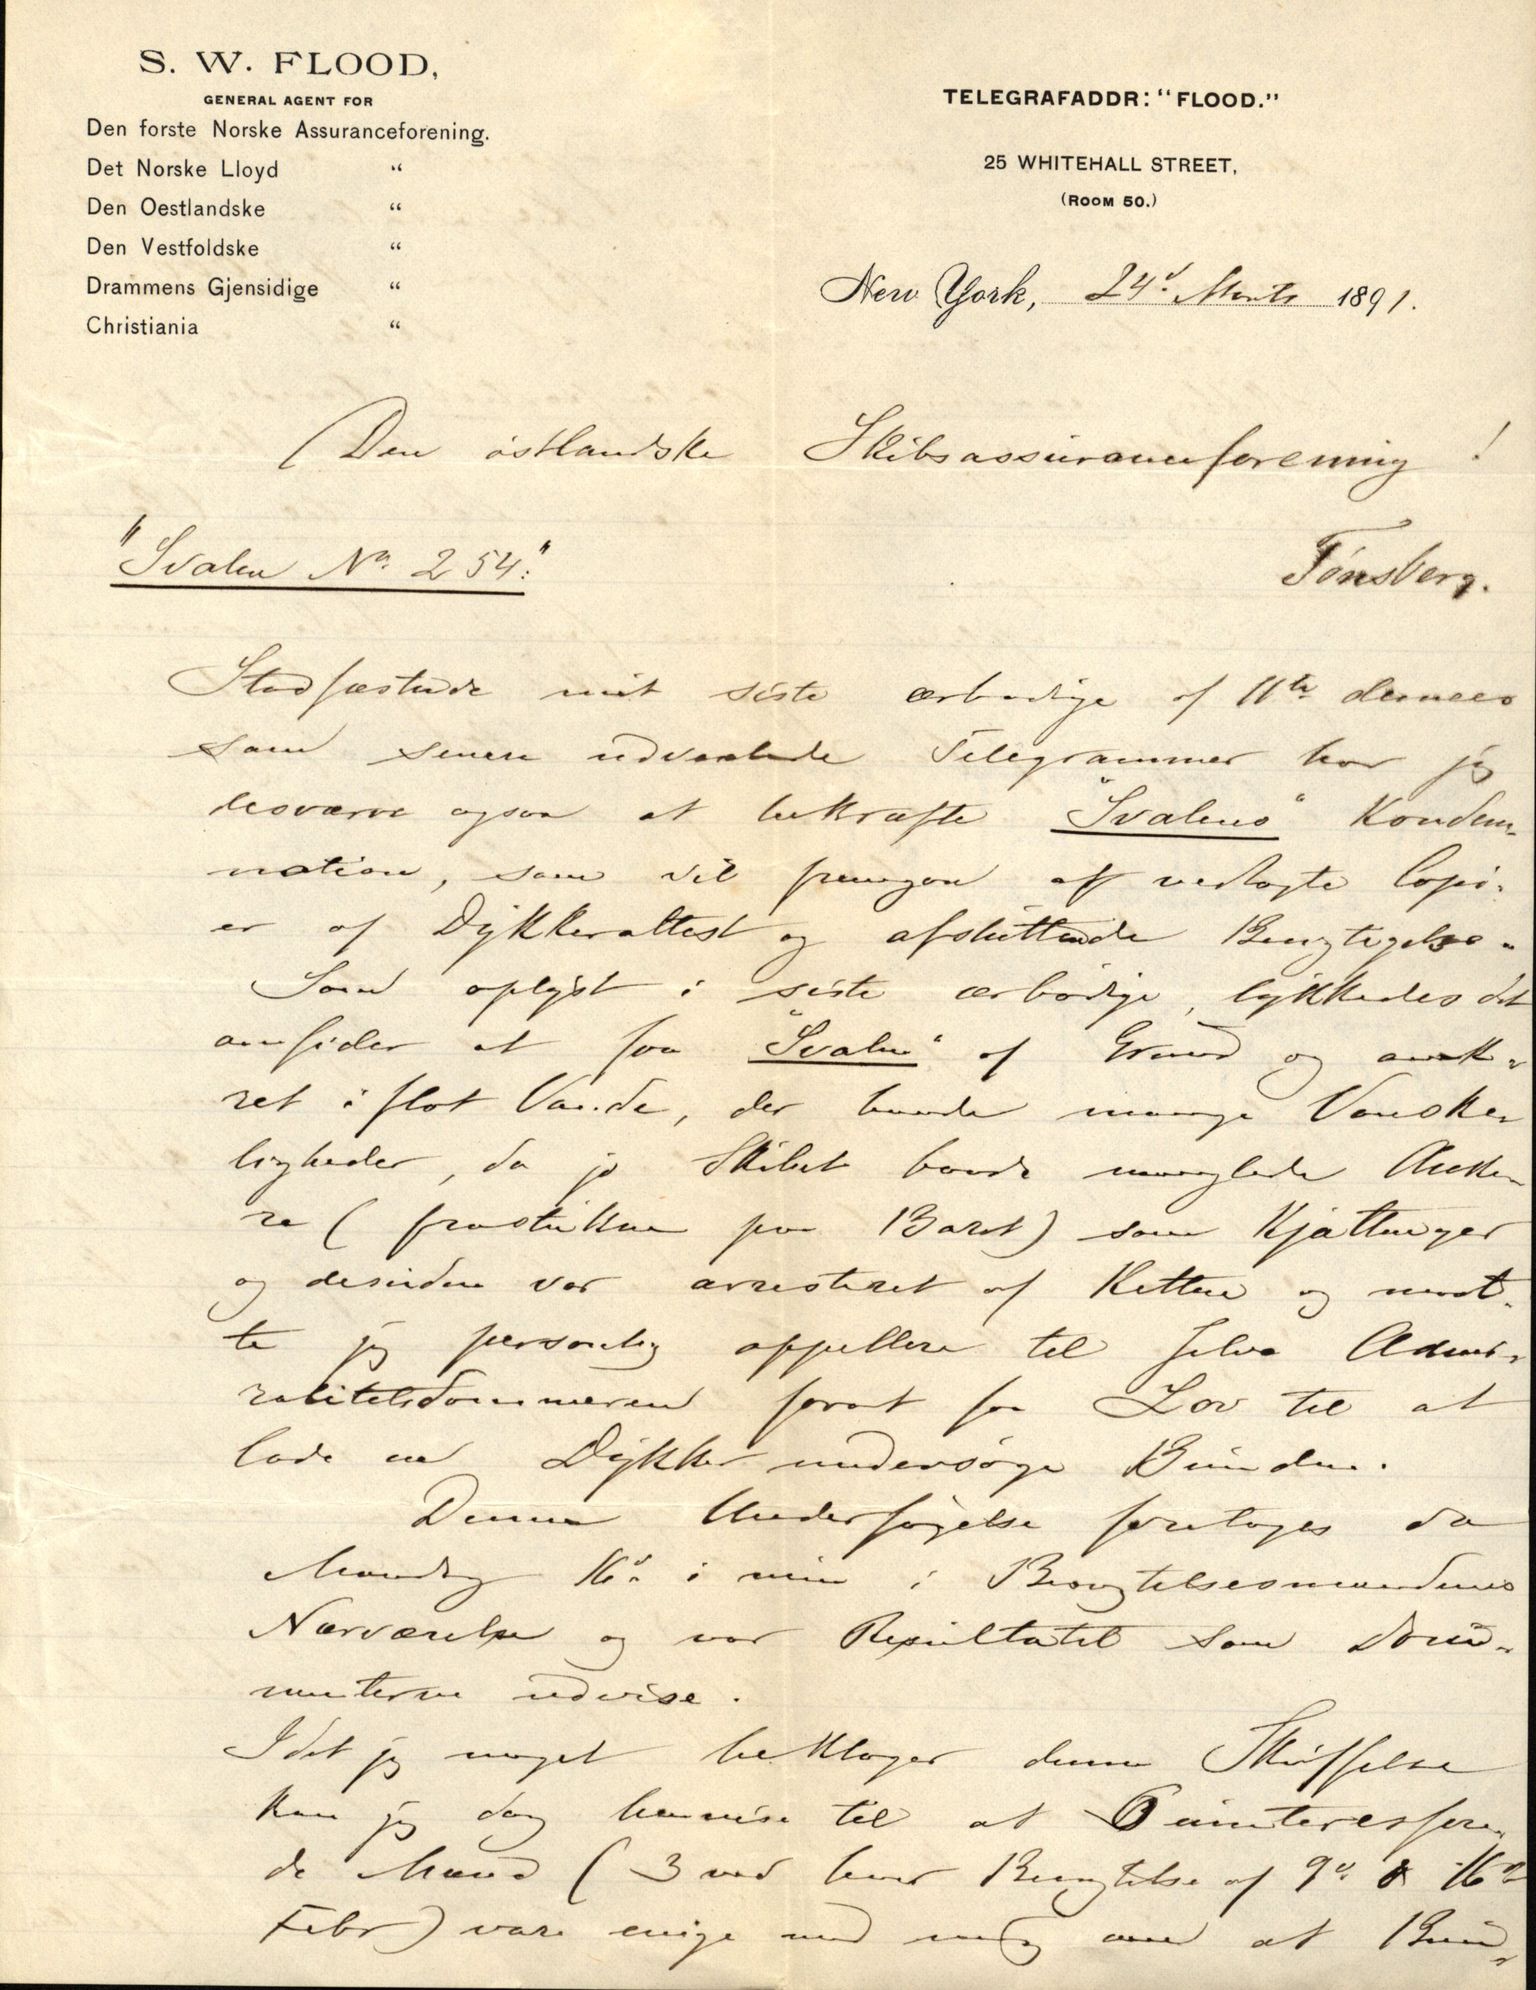 S. W. FLOOD,
GENERAL AGENT FOR
Den forste Norske Assuranceforening.
Det Norske Lloyd "
Den Oestlandske "
Den Vestfoldske "
Drammens Gjensidige "
Christiania "
TELEGRAFADDR: "FLOOD."
25 WHITEHALL STREET,
(ROOM 50.)
New York, 24d Marts 1891.
Den östlandske Skibsassuranceforening!
"Svalen No. 254."
Tönsberg.
Stadfæstende mit siste ærbødige af 11te dennes
som senere udvexlede Telegrammer har jeg
desværre ogsaa at bekræfte "Svalens" Kondem-
nation, som vil fremgaa af vedlagte Copi-
er af Dykkerattest og afsluttende Besigtigelse.
Som oplyst i siste ærbödige, lykkedes det
omsider at faa "Svalen" af Grund og ank-
ret i flot Vande, der havde mange Vanske
ligheder, da jo Skibet baade manglede Anke-
re (frastukne paa Baret) som Kjættinger
og desuden var arresteret af Retten og maat-
te jeg personlig appellere til selve Admi-
ralitetsdommeren forat faa Lov til at
lade en Dykker undersöge Bunden.
Denne Undersögelse foretoges da
Mandag 16d i min i Besigtelsesmændenes
Nærværelse og var Resultatet som Doku-
menterne udvise.
Idet jeg meget beklager denne Skuffelse
kan jeg dog henvise til at 6 uinteressere-
de Mænd (3 ved hver Besigtelse af 9d & 16de
Febr) vare enige med mig om at Bun-